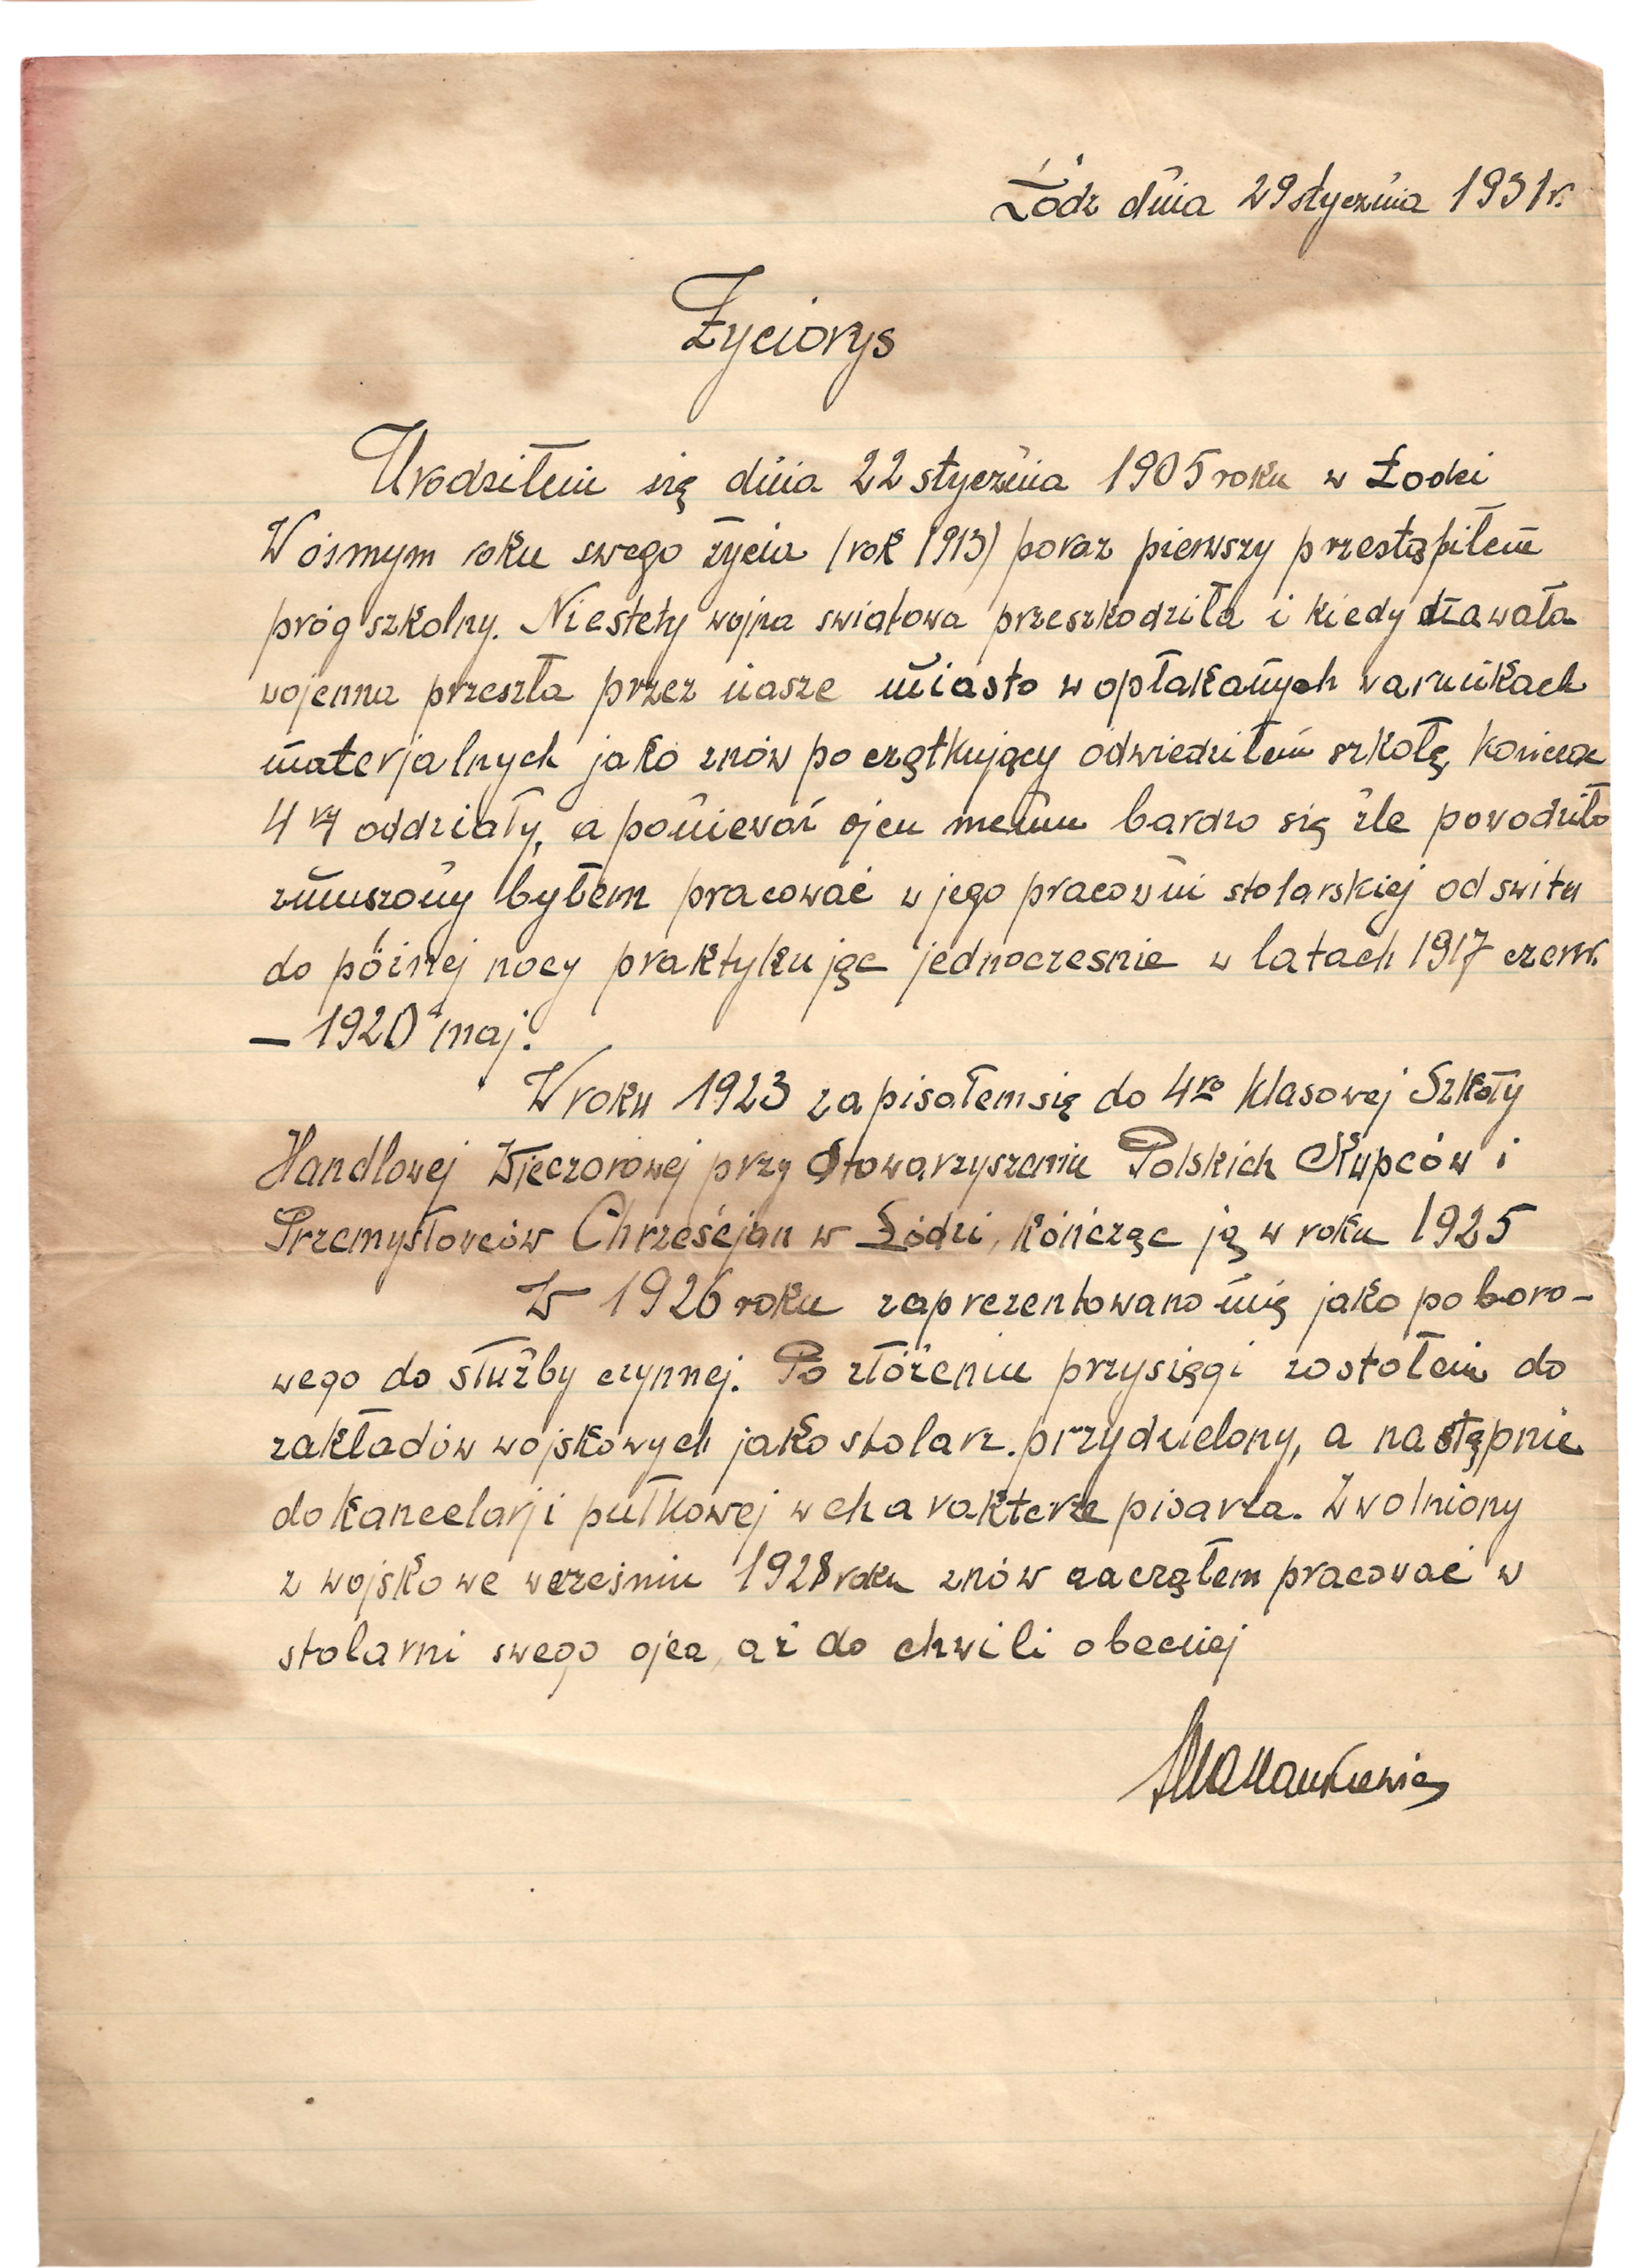 Łódź dnia 29 stycznia 1931 r.
Życiorys
Urodziłem się dnia 22 stycznia 1905 roku w Łodzi
W ósmym roku swego życia (rok 1913) poraz pierwszy przestąpiłem
próg szkolny. Niestety wojna swiatowa przeszkodziła i kiedy zawała
wojenna przeszła przez nasze miasto w opłakanych warunkach
materjalnych jako znów początkujący odwiedziłem szkołę, kończąc
4 ry oddziały, a ponieważ ojcu memu bardzo się źle powodziło
zmuszony byłem pracować w jego pracowni stolarskiej od switu
do późnej nocy praktykując jednoczesnie w latach 1917 czerw.
– 1920 maj.
W roku 1923 zapisałem się do 4ro klasowej Szkoły
Handlowej Wieczorowej przy Stowarzyszeniu Polskich Kupców i
Przemysłowców Chrześcjan w Łodzi, kończąc ją w roku 1925
W 1926 roku zaprezentowano mię jako poboro-
wego do służby czynnej. Po złożeniu przysięgi zostałem do
zakładów wojskowych jako stolarz przydzielony, a następnie
do kancelarji pułkowej w charakterze pisarza. Zwolniony
z wojsko we wrześniu 1928 roku znów zacząłem pracować w
stolarni swego ojca, aż do chwili obecnej